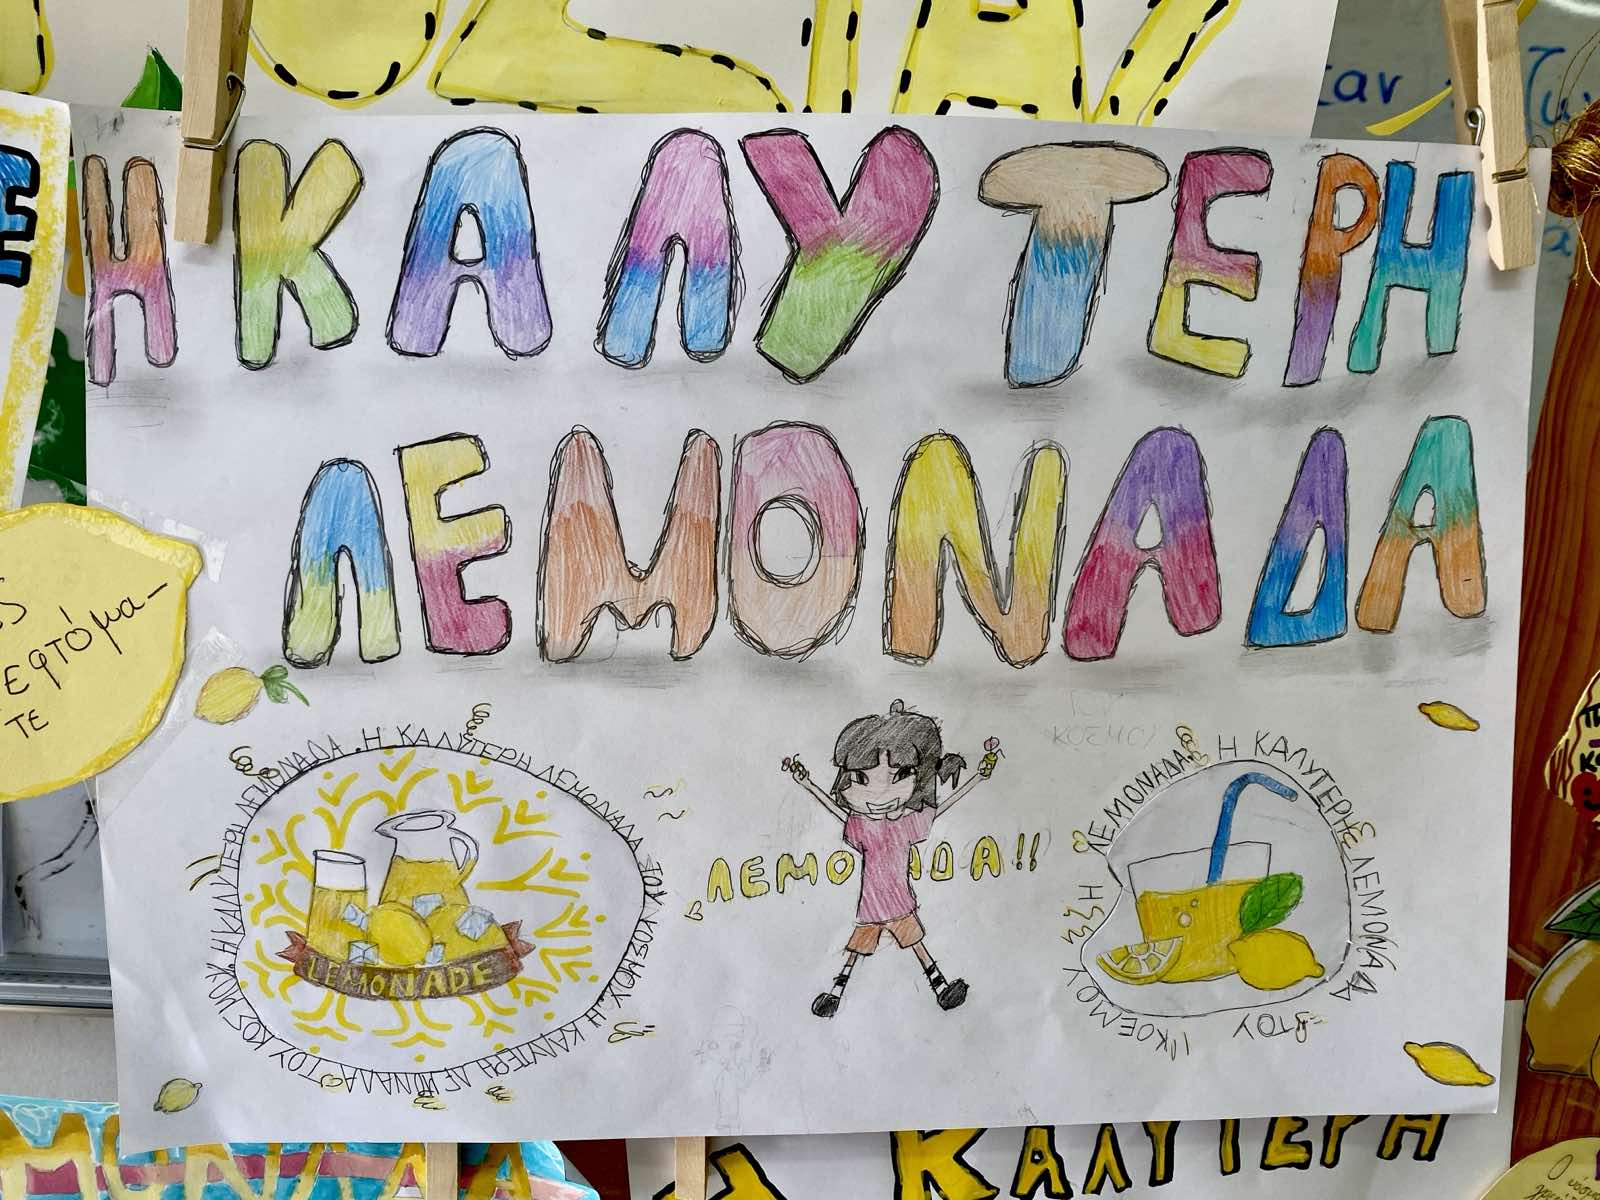 Η ΚΑΛΥΤΕΡΗ
ΛΕΜΟΝΑΔΑ
εφτόμα-
ΤΕ
Η ΚΑΛΥΤΕΡΗ ΛΕΜΟΝΑΔΑ ΤΟΥ ΚΟΣΜΟΥ. Η ΚΑΛΥΤΕΡΗ ΛΕΜΟΝΑΔΑ ΤΟΥ ΚΟΣΜΟΥ. Η ΚΑΛΥΤΕΡΗ ΛΕΜΟΝΑΔΑ.
LEMONADE
ΛΕΜΟ ΑΔΑ!!
Η ΚΑΛΥΤΕΡΗ ΛΕΜΟΝΑΔΑ ΤΟΥ ΚΟΣΜΟΥ Η ΛΕΜΟΝΑΔΑ
ΚΟΣΜΟΥ
ΜΟΝΑΔΑ
ΚΑΛΥΤΕΡΗ